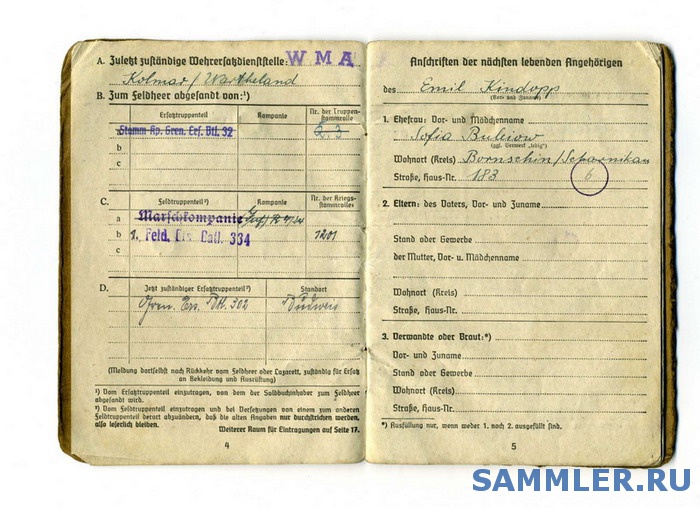 A. Zuletzt zuständige Wehrersatzdienststelle: W M A
Kolmar / Wartheland
B. Zum Feldheer abgesandt von:¹)
Ersatztruppenteil Kompanie Nr. der Truppenstammrolle
a Stamm-Kp. Gren. Ers. Btl. 32
b
c
C. Feldtruppenteil²) Kompanie Nr. der Kriegsstammrolle
a Marschkompanie
b 1. Feld. Batl. 334 1201
c
D. Jetzt zuständiger Ersatztruppenteil²) Standort
Gren. Ers. Btl. 302 Budweis
(Meldung dortselbst nach Rückkehr vom Feldheer oder Lazarett, zuständig für Ersatz
an Bekleidung und Ausrüstung)
¹) Vom Ersatztruppenteil einzutragen, von dem der Soldbuchinhaber zum Feldheer
abgesandt wird.
²) Vom Feldtruppenteil einzutragen und bei Versetzungen von einem zum anderen
Feldtruppenteil derart abzuändern, daß die alten Angaben nur durchstrichen werden,
also leserlich bleiben.
Weiterer Raum für Eintragungen auf Seite 17.
4
Anschriften der nächsten lebenden Angehörigen
des Emil Kindopp
(Vor- und Zuname)
1. Ehefrau: Vor- und Mädchenname
Sofia
(ggf. Vermerk „ledig")
Wohnort (Kreis)
Straße, Haus-Nr. 183 6
2. Eltern: des Vaters, Vor- und Zuname
Stand oder Gewerbe
der Mutter, Vor- u. Mädchenname
Wohnort (Kreis)
Straße, Haus-Nr.
3. Verwandte oder Braut:*)
Vor- und Zuname
Stand oder Gewerbe
Wohnort (Kreis)
Straße, Haus-Nr.
*) Ausfüllung nur, wenn weder 1. noch 2. ausgefüllt sind.
5
SAMMLER.RU